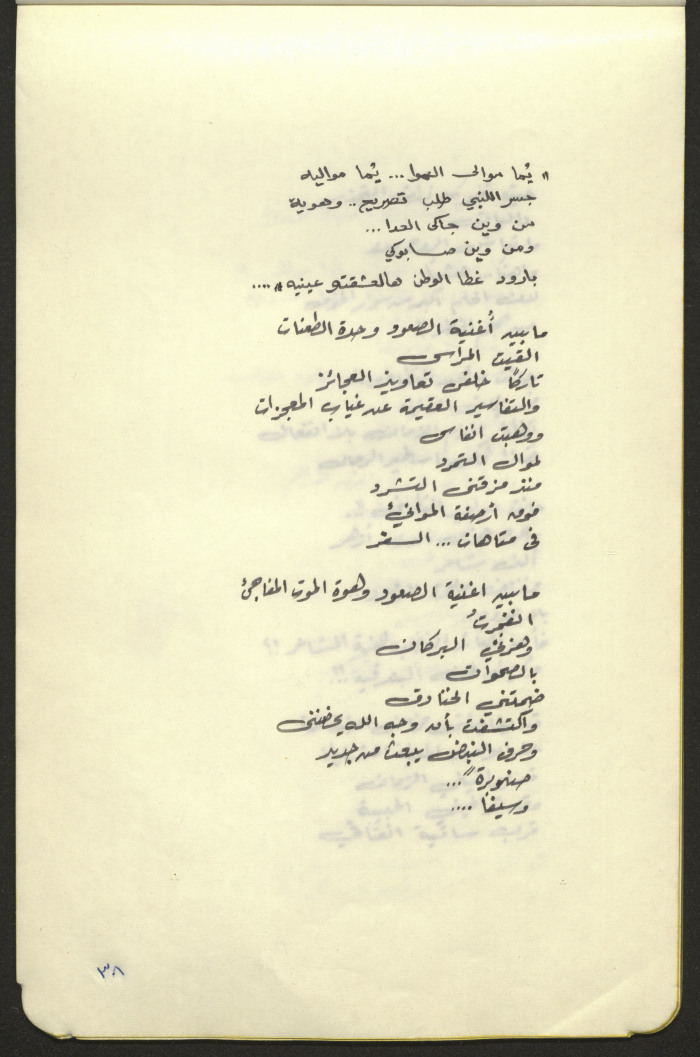 " يُما موالى الهوا... يُما مواليه
جسر اللنبي طلب تصريح.. وهوية
من وين جاكى العدا...
ومن وين صابوكي
بارود غطا الوطن هالعشقته عينيه"....
ما بين أغنية الصعود وحدة الطعنات
القيت المراسى
تاركاً خلفى تعاويذ العجائز
والتفاسير العقيمة عن غياب المعجزات
ووهبت انفاسى
لموال التمرد
منذ مزقنى التشرد
فوق ارصفة الموانئ
فى متاهات... السفر
ما بين اغنية الصعود وهوة الموت المفاجئ
انفجرتُ
وهزني البركان
بالصحوات
ضمتني الخنادق
واكتشفت بأن وجه الله يحضننى
وحرف النبض يبعث من جديد
صنوبرة ً...
وسيفا ....
٣٨